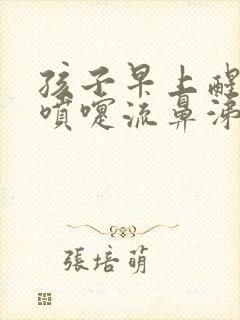 孩子早上醒
噴嚏流鼻涕
張培萌